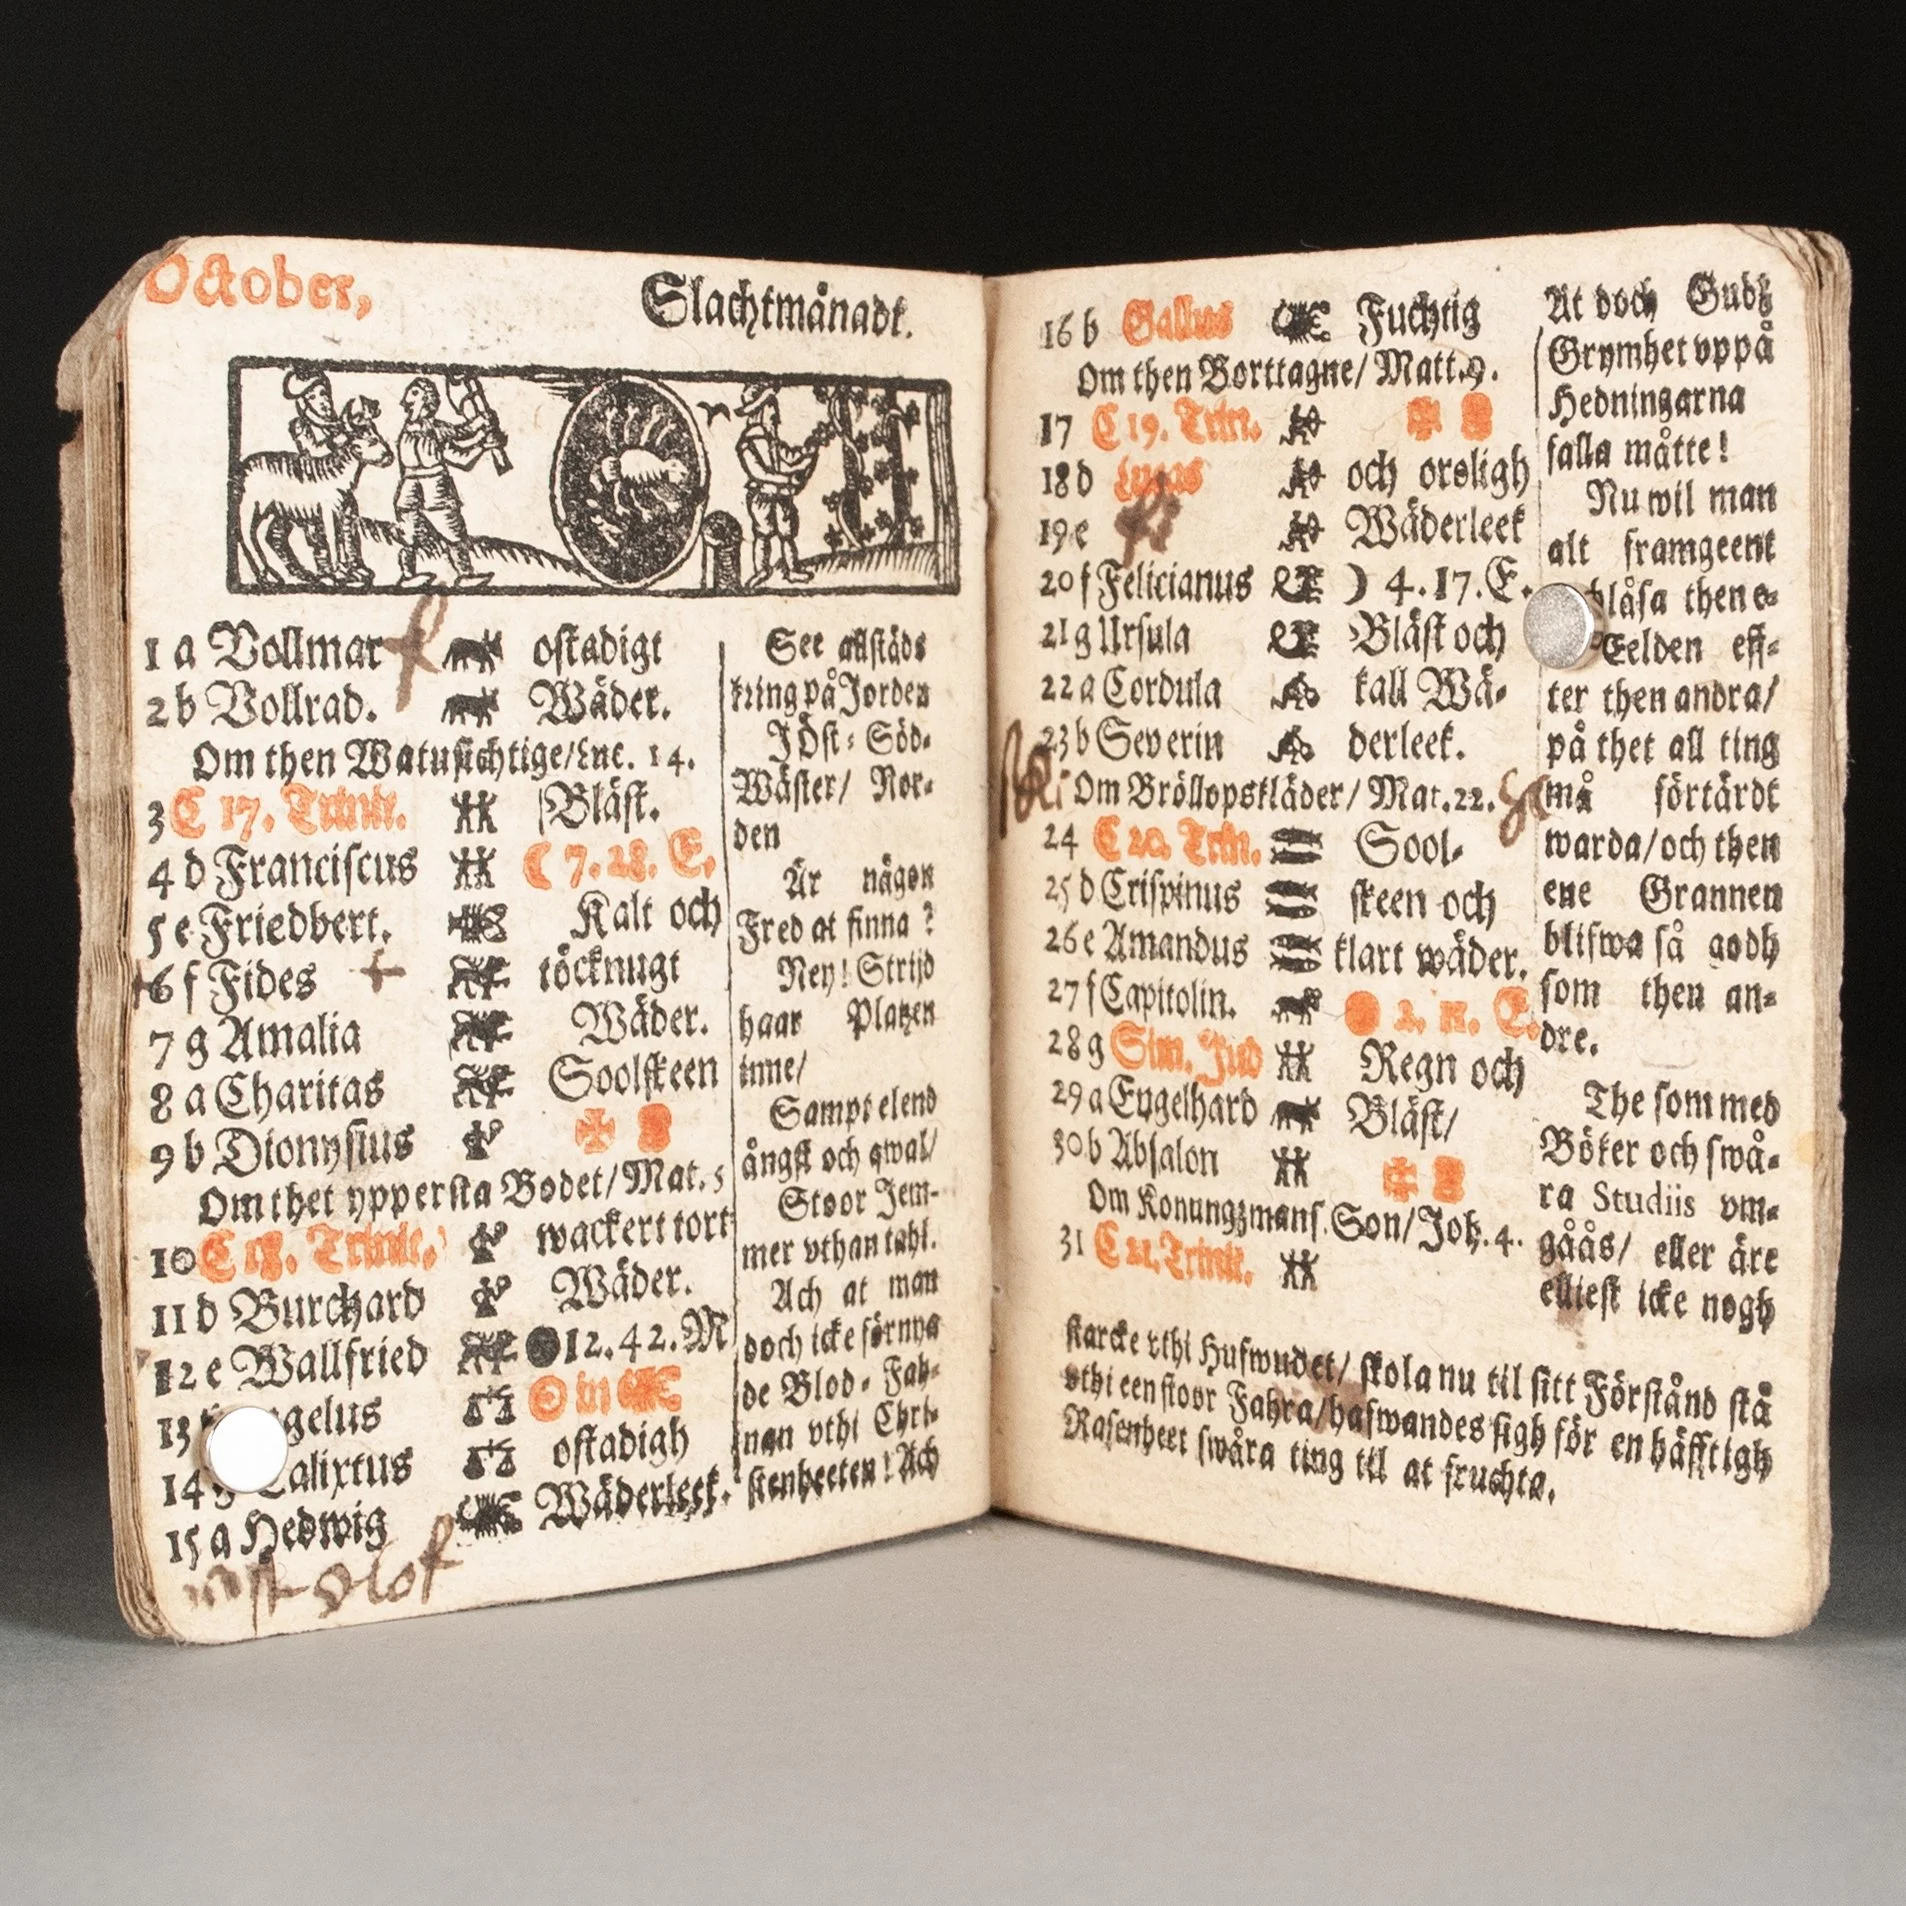 October, Slachtmånadt.
1 a Vollmar oſtadigt
2 b Vollrad. Wäder.
Om then Watuſichtige/Luc. 14.
3 C 17. Trinit. Bläſt.
4 d Franciſcus C 7. 28. E.
5 e Friedbert. Kalt och
6 f Fides töcknugt
7 g Amalia Wäder.
8 a Charitas Soolſkeen
9 b Dionyſius
Om thet ypperſta Bodet/Mat. 5
10 C 18. Trinit. wackert tort
11 d Burchard Wäder.
12 e Wallfried 12. 42. M
13 gelus ☉ in
14 g alixtus oſtadigh
15 a Hedwig Wäderleek.
Olof
See allſtäds
kring på Jorden
J Öſt- Söd-
Wäſter/ Nor-
den
Är någon
Fred at finna?
Ney! Strijd
haar Platzen
inne/
Sampt elend
ångſt och qwal/
Stoor Jem-
mer vthan tahl.
Ach at man
doch icke förnya
de Blod- Fah-
nan vthi Chri-
ſtenheeten! Ach
16 b Gallus Fuchtig
Om then Borttagne/ Matt. 9.
17 C 19. Trin.
18 d Lucas och oroligh
19 e Wäderleek
20 f Felicianus ) 4. 17. E.
21 g Urſula Bläſt och
22 a Cordula kall Wä-
23 b Severin derleek.
Om Bröllopskläder/ Mat. 22.
24 C 20. Trin. Sool-
25 d Criſpinus ſkeen och
26 e Amandus klart wäder.
27 f Capitolin. 2. 11. E.
28 g Sim. Jud Regn och
29 a Engelhard Bläſt/
30 b Abſalon
Om Konungzmanſ. Son/Joh. 4.
31 C 21. Trinit.
At doch Gudz
Grymhet vppå
Hedningarna
falla måtte!
Nu wil man
alt framgeent
blåſa then e-
Eelden eff-
ter then andra/
på thet all ting
må förtärdt
warda/och then
ene Grannen
blifwa ſå godh
ſom then an-
dre.
The ſom med
Böker och ſwå-
ra Studiis vm-
gåås/ eller äre
ellieſt icke nogh
ſtarcke vthi Hufwudet/ ſkola nu til ſitt Förſtånd ſtå
vthi een ſtoor Fahra/hafwandes ſigh för en häfftigh
Raſenheet ſwåra ting til at fruchta.